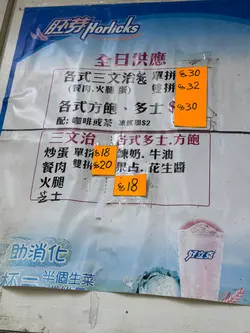 胚芽Horlicks
全日供應
各式三文治 單拼 $30
(餐肉.火腿 蛋) 雙拼 $32
各式方飽、多士 $30
配: 咖啡或茶 凍飲加$2
三文治 各式多士.方飽
炒蛋 單拼 $18 煉奶.牛油
餐肉 雙拼 $20 果占.花生醬
火腿 $18
芝士
好立克
助消化
杯一半個生菜